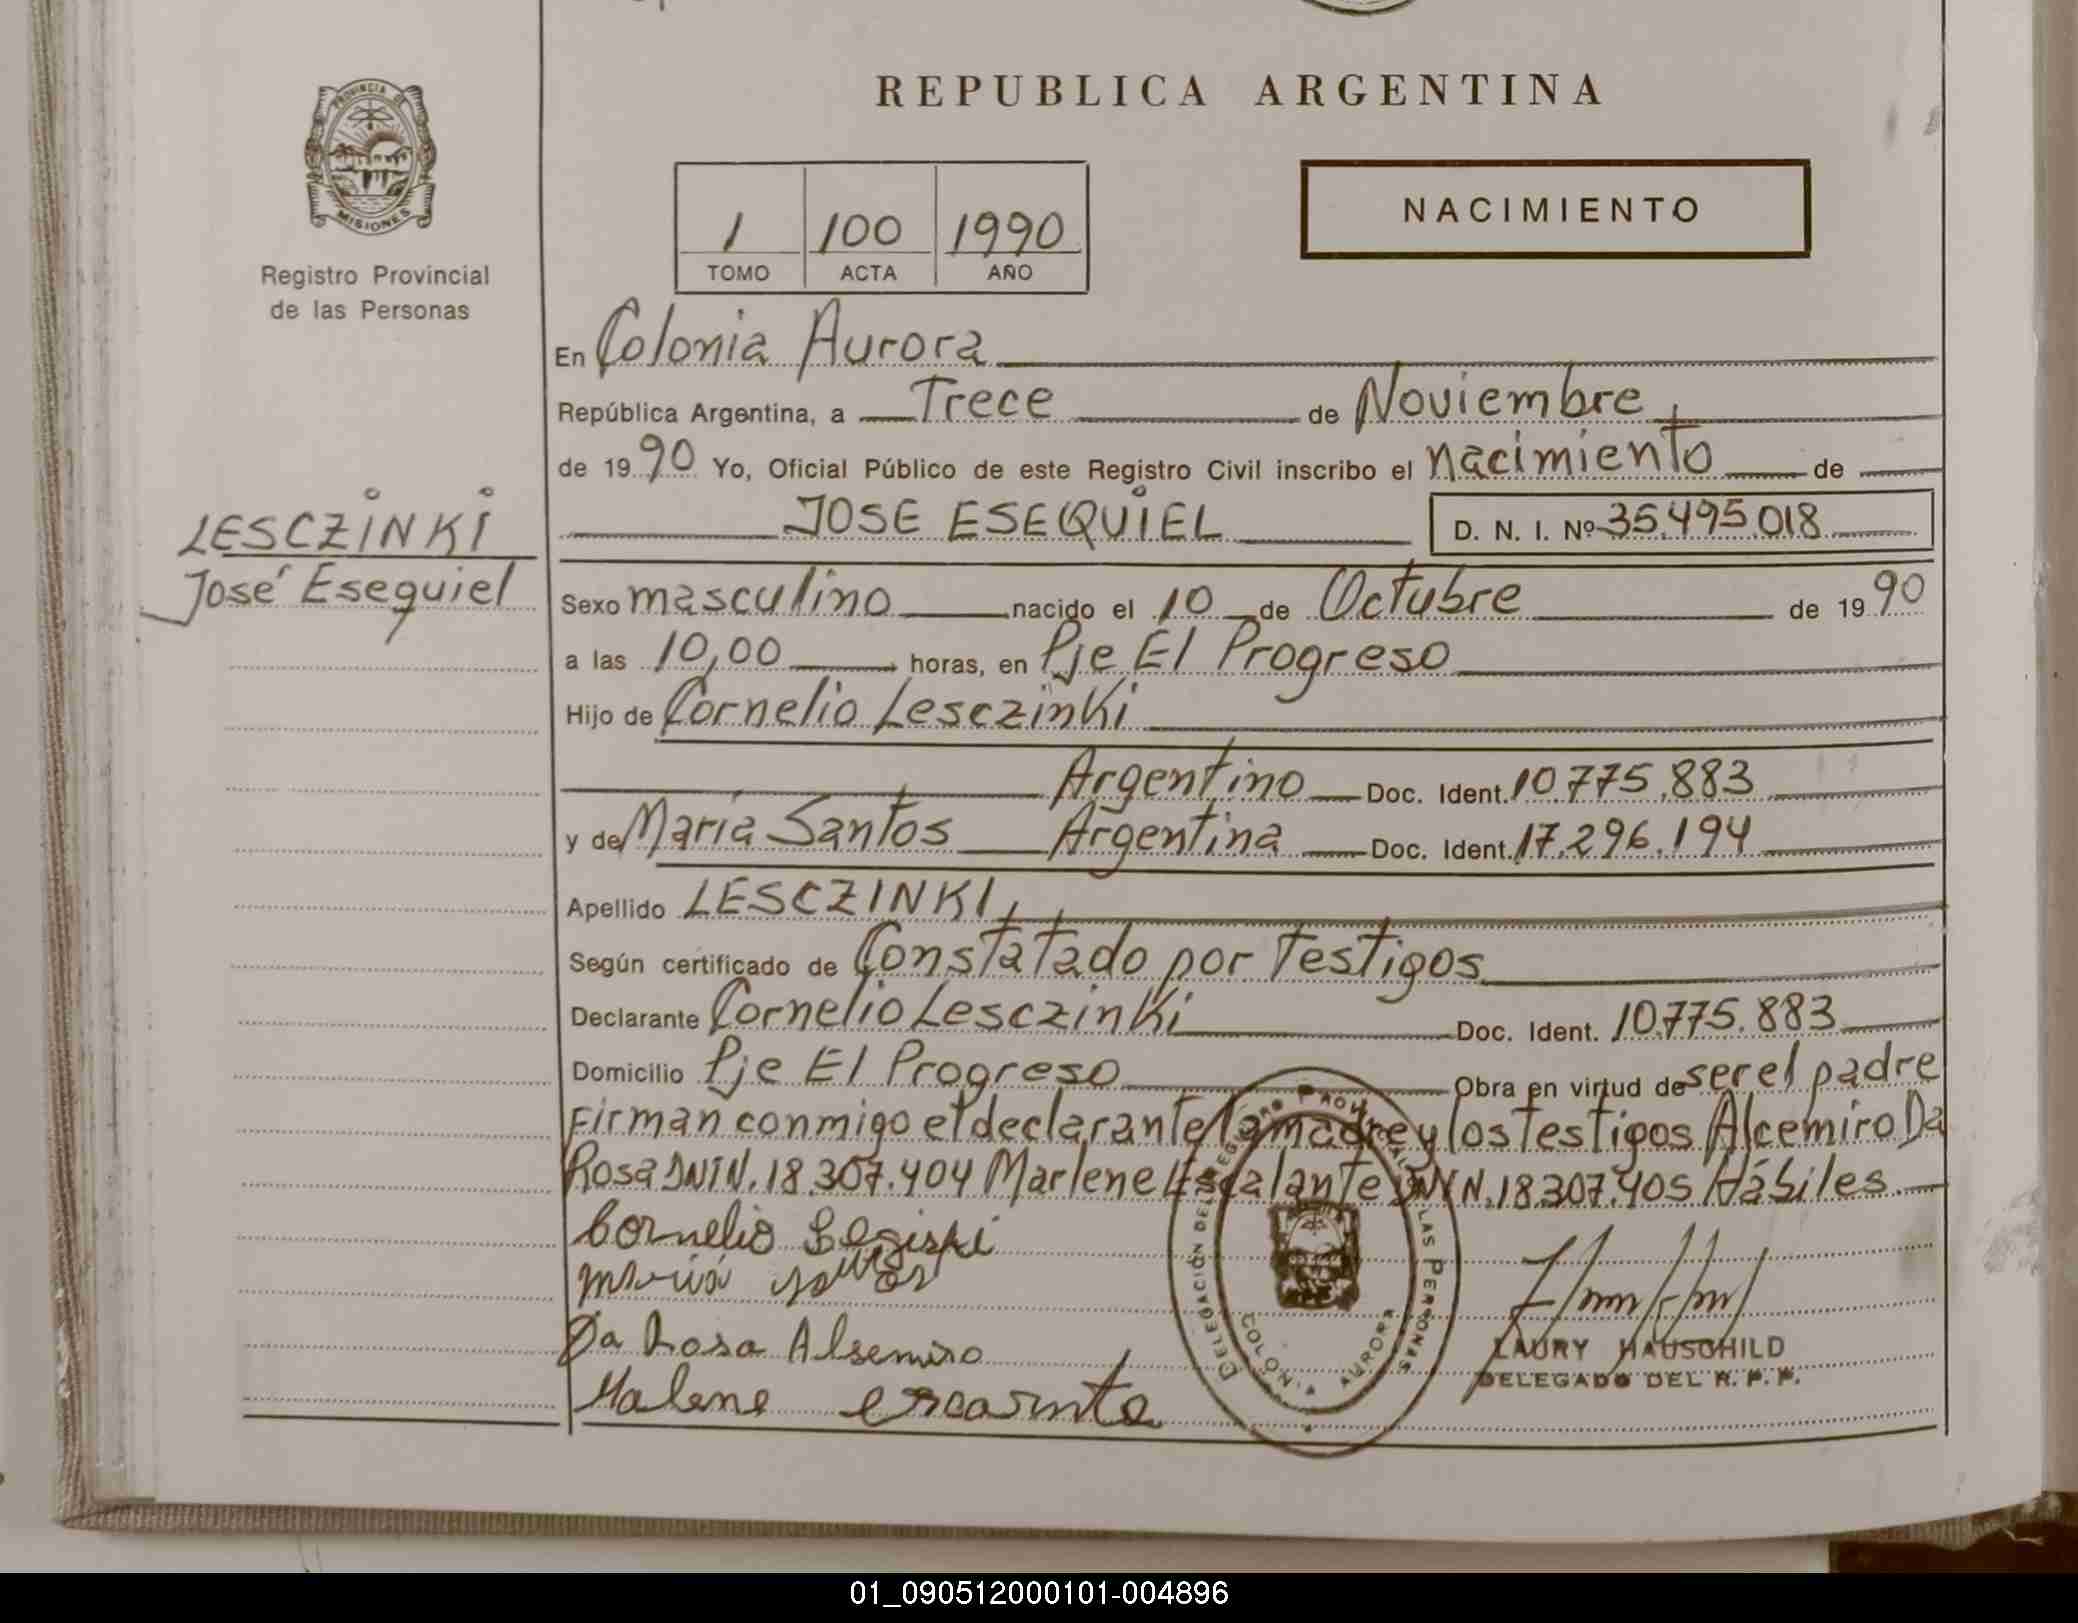 REPUBLICA ARGENTINA
PROVINCIA DE
MISIONES
Registro Provincial
de las Personas
NACIMIENTO
1 100 1990
TOMO ACTA AÑO
En Colonia Aurora
República Argentina, a Trece de Noviembre
de 1990 Yo, Oficial Público de este Registro Civil inscribo el nacimiento de
JOSE ESEQUIEL D. N. I. Nº 35.495.018
LESCZINKI
José Esequiel
Sexo masculino nacido el 10 de Octubre de 1990
a las 10,00 horas, en Pje El Progreso
Hijo de Cornelio Lesczinki
Argentino Doc. Ident. 10.775.883
y de María Santos Argentina Doc. Ident. 17.296.194
Apellido LESCZINKI
Según certificado de Constatado por Testigos
Declarante Cornelio Lesczinki Doc. Ident. 10.775.883
Domicilio Pje El Progreso Obra en virtud de ser el padre
Firman conmigo el declarante la madre y los testigos Alcemiro Da
Rosa DNI N. 18.307.404 Marlene Escalante DNI N. 18.307.405 Hábiles
Cornelio
Maria santos
Da Rosa Alsemiro
Malene
DELEGACIÓN DEL REGISTRO PROVINCIAL DE LAS PERSONAS
COLONIA AURORA
LAURY HAUSCHILD
DELEGADO DEL R. P. P.
01_090512000101-004896